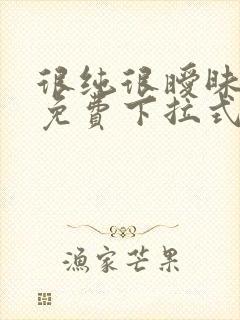 很纯很暧昧
免費下拉式
漁家芒果